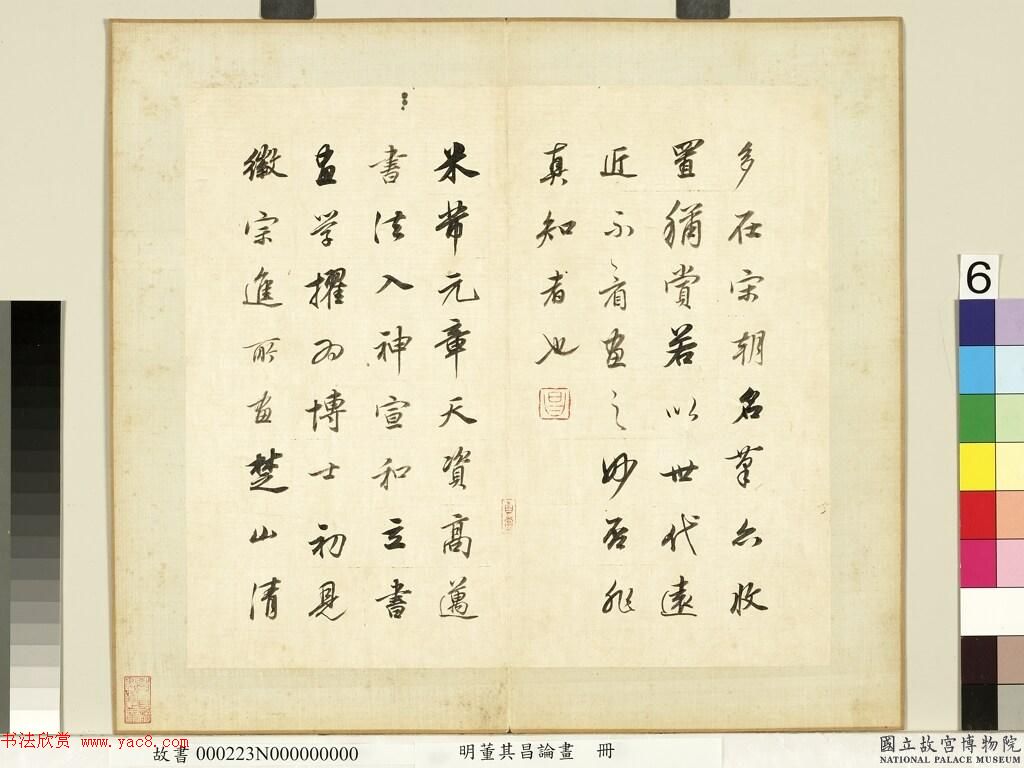 多在宋朝名筆亦收
置猶賞若以世代遠
近不看畫之妙否非
真知者也
昌
米芾元章天資高邁
書法入神宣和立書
畫学擢為博士初見
徽宗進所畫楚山清
6
书法欣赏 www.yac8.com
故書 000223N000000000
明董其昌論畫 冊
國立故宮博物院
NATIONAL PALACE MUSEUM